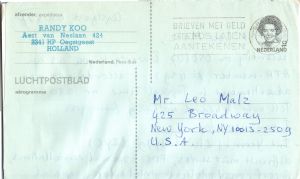 afzender, expéditeur
RANDY KOO
Aert van Neslaan 424
2341 HP Oegstgeest
HOLLAND
Nederland, Pays-Bas
LUCHTPOSTBLAD
aérogramme
BRIEVEN MET GELD
AANTEKENEN
NEDERLAND
Mr. Leo Malz
425 Broadway
New York, NY 10013-2509
U.S.A.